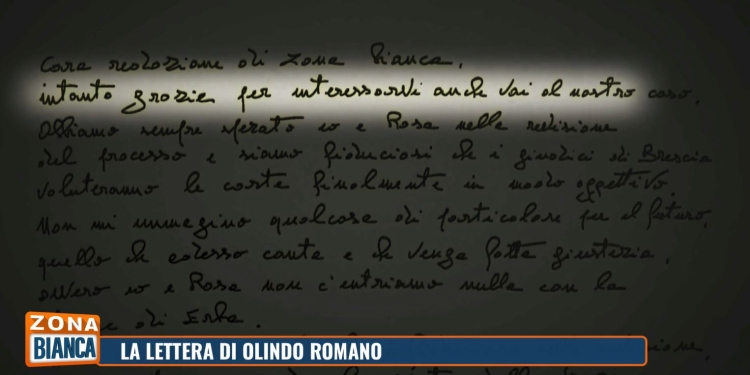 Cara redazione di Zona Bianca,
intanto grazie per interessarvi anche voi al nostro caso.
Abbiamo sempre sperato io e Rosa nella revisione
del processo e siamo fiduciosi che i giudici di Brescia
valuteranno le carte finalmente in modo oggettivo.
Non mi immagino qualcosa di particolare per il futuro,
quello che adesso conta e che venga fatta giustizia,
ovvero io e Rosa non c'entriamo nulla con la
di Erba.
ZONA
BIANCA
LA LETTERA DI OLINDO ROMANO